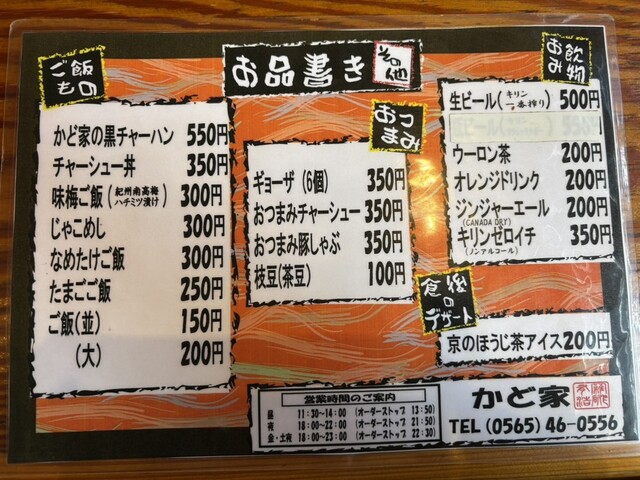 お品書き
その他
ご飯
もの
かど家の黒チャーハン 550円
チャーシュー丼 350円
味梅ご飯(紀州南高梅 ハチミツ漬け) 300円
じゃこめし 300円
なめたけご飯 300円
たまごご飯 250円
ご飯(並) 150円
(大) 200円
おつ
まみ
ギョーザ(6個) 350円
おつまみチャーシュー 350円
おつまみ豚しゃぶ 350円
枝豆(茶豆) 100円
お飲
み物
生ビール(キリン 一番搾り) 500円
ウーロン茶 200円
オレンジドリンク 200円
ジンジャーエール 200円
(CANADA DRY)
キリンゼロイチ 350円
(ノンアルコール)
食後
の
デザート
京のほうじ茶アイス 200円
営業時間のご案内
昼 11:30~14:00 (オーダーストップ 13:50)
夜 18:00~22:00 (オーダーストップ 21:50)
金・土夜 18:00~23:00 (オーダーストップ 22:30)
かど家
TEL (0565) 46-0556